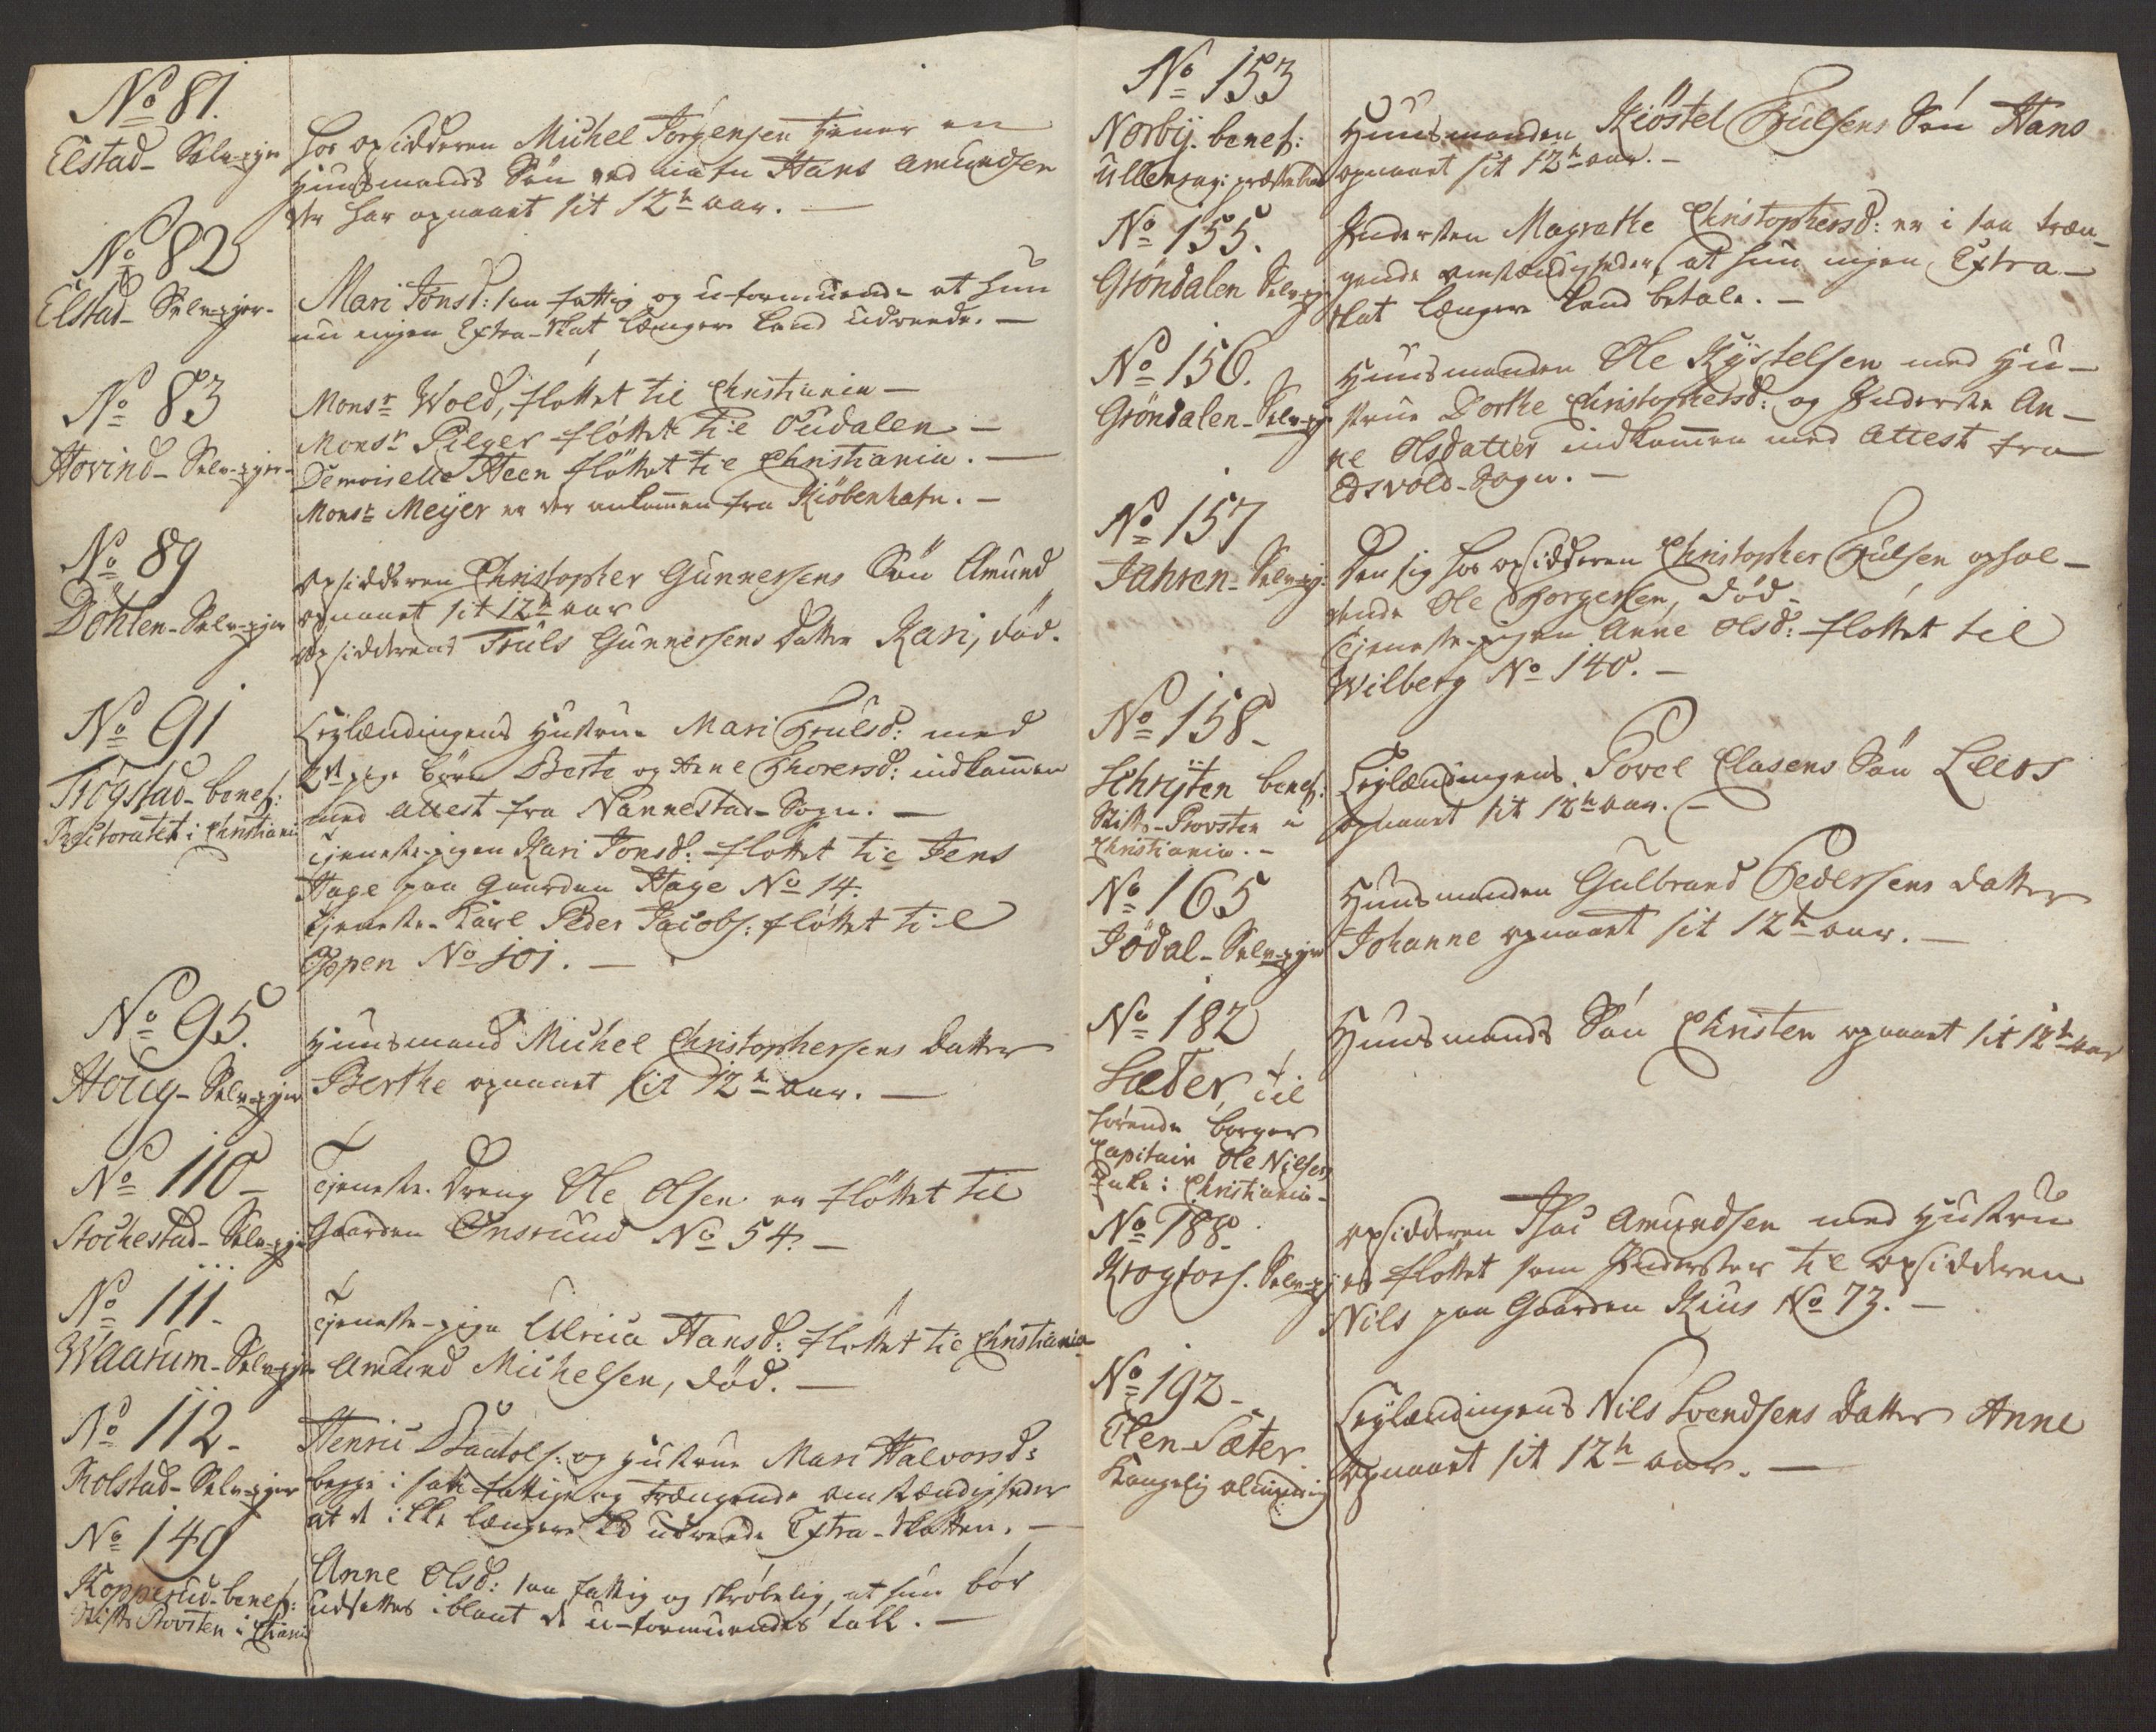 No 81.
Elstad- Selv-ejer
hos opsidderen Michel Jörgensen tjener en
Huusmands Sön ved nafn Hans Amundsen
der har opnaaet sit 12te aar. —
No 82
Elstad- Selv-ejer-
Mari Jonsd: saa fattig og uformuende at hun
nu ingen Extra-Skat længere kand udreede. —
No 83
Hovind- Selv-ejer-
Monsr Wold, flöttet til Christiania —
Monsr Pilger flöttet til Oudalen —
Demoiselle Steen flöttet til Christiania. —
Monsr Meyer er der ankommen fra Kiöbenhafn. —
No 89
Döhlen- Selv-ejer
opsidderen Christopher Gunnersens Sön Amund
opnaaet sit 12te aar
opsidderens Truls Gunnersens Datter Kari, död.
No 91
Trögstad- benef:
Rectoratet i Christiania
Leylændingens Hustrue Mari Trulsd: med
2de pige börn Berte og Anne Thorersd: indkommen
med Attest fra Nannestad- Sogn. —
Tjeneste-pigen Kari Jonsd: flöttet til Jens
Hage paa Gaarden Hage No 14.
Tjeneste-Karl Peder Jacobs: flöttet til
Oppen No 101. —
No 95.
Houg- Selv-ejer
Huusmand Michel Christophersens Datter
Berthe opnaaet sit 12te aar. —
No 110 —
Stochestad- Selv-ejer
Tjeneste-Dreng Ole Olsen er flöttet til
Gaarden Onsrund No 54. —
No 111 -
Waarum- Selv-ejer
Tjeneste-pige Ulrica Hansd: flöttet til Christiania
Amund Michelsen, död. —
No 112 -
Kolstad- Selv-ejer
Henric Pautols: og Hustrue Mari Halvorsd:
begge i saa fattige og trængende omstændigheder
at de ikke længere kand udreede Extra-Skatten. —
No 149
Kopperud- benef:
Stifts Provsten i Christiania
Anne Olsd: saa fattig og skröbelig, at hun bör
udsettes iblant de u-formuendes tall. —
No 153
Norby- benef:
Ullensager præstebord
Huusmanden Kiöstel Trulsens Sön Hans
opnaaet sit 12te aar. —
No 155.
Gröndalen Selv-ejer
Indersten Magrathe Christophersd: er i saa træn-
gende omstændigheder, at hun ingen Extra-
Skat længere kand betale. —
No 156.
Gröndalen- Selv-ejer
Huusmanden Ole Kystelsen med Hu-
strue Dorthe Christophersd: og Inderste An-
ne Olsdatter indkommen med Attest fra
Edsvold- Sogn. —
No 157
Jahren- Selv-ejer
Den sig hos opsidderen Christopher Trulsen ophol-
dende Ole Thorgersen, död-
Tjeneste-pigen Anne Olsd: flöttet til
Wilberg No 140. —
No 158 -
Schryten benef:
Stifts-Provsten i
Christiania. -
Leylændingens Povel Clasens Sön Leevs
opnaaet sit 12te aar. —
No 165
Jödal- Selv-ejer
Huusmanden Gulbrand Pedersens Datter
Johanne opnaaet sit 12te aar. —
No 182
Sæter, til
hörende borger
Capitain Ole Nilsen
i Christiania-
Huusmands Sön Christen opnaaet sit 12te aar
No 188.
Krogfoss. Selv-ejer
opsidderen Isac Amundsen med Hustrue
er flöttet som Inderster til opsidderen
Nils paa Gaarden Kius No 73. —
No 192 -
Elen-Sæter
Kongelig alminding
Leylændingens Nils Svendsens Datter Anne
opnaaet sit 12te aar. —